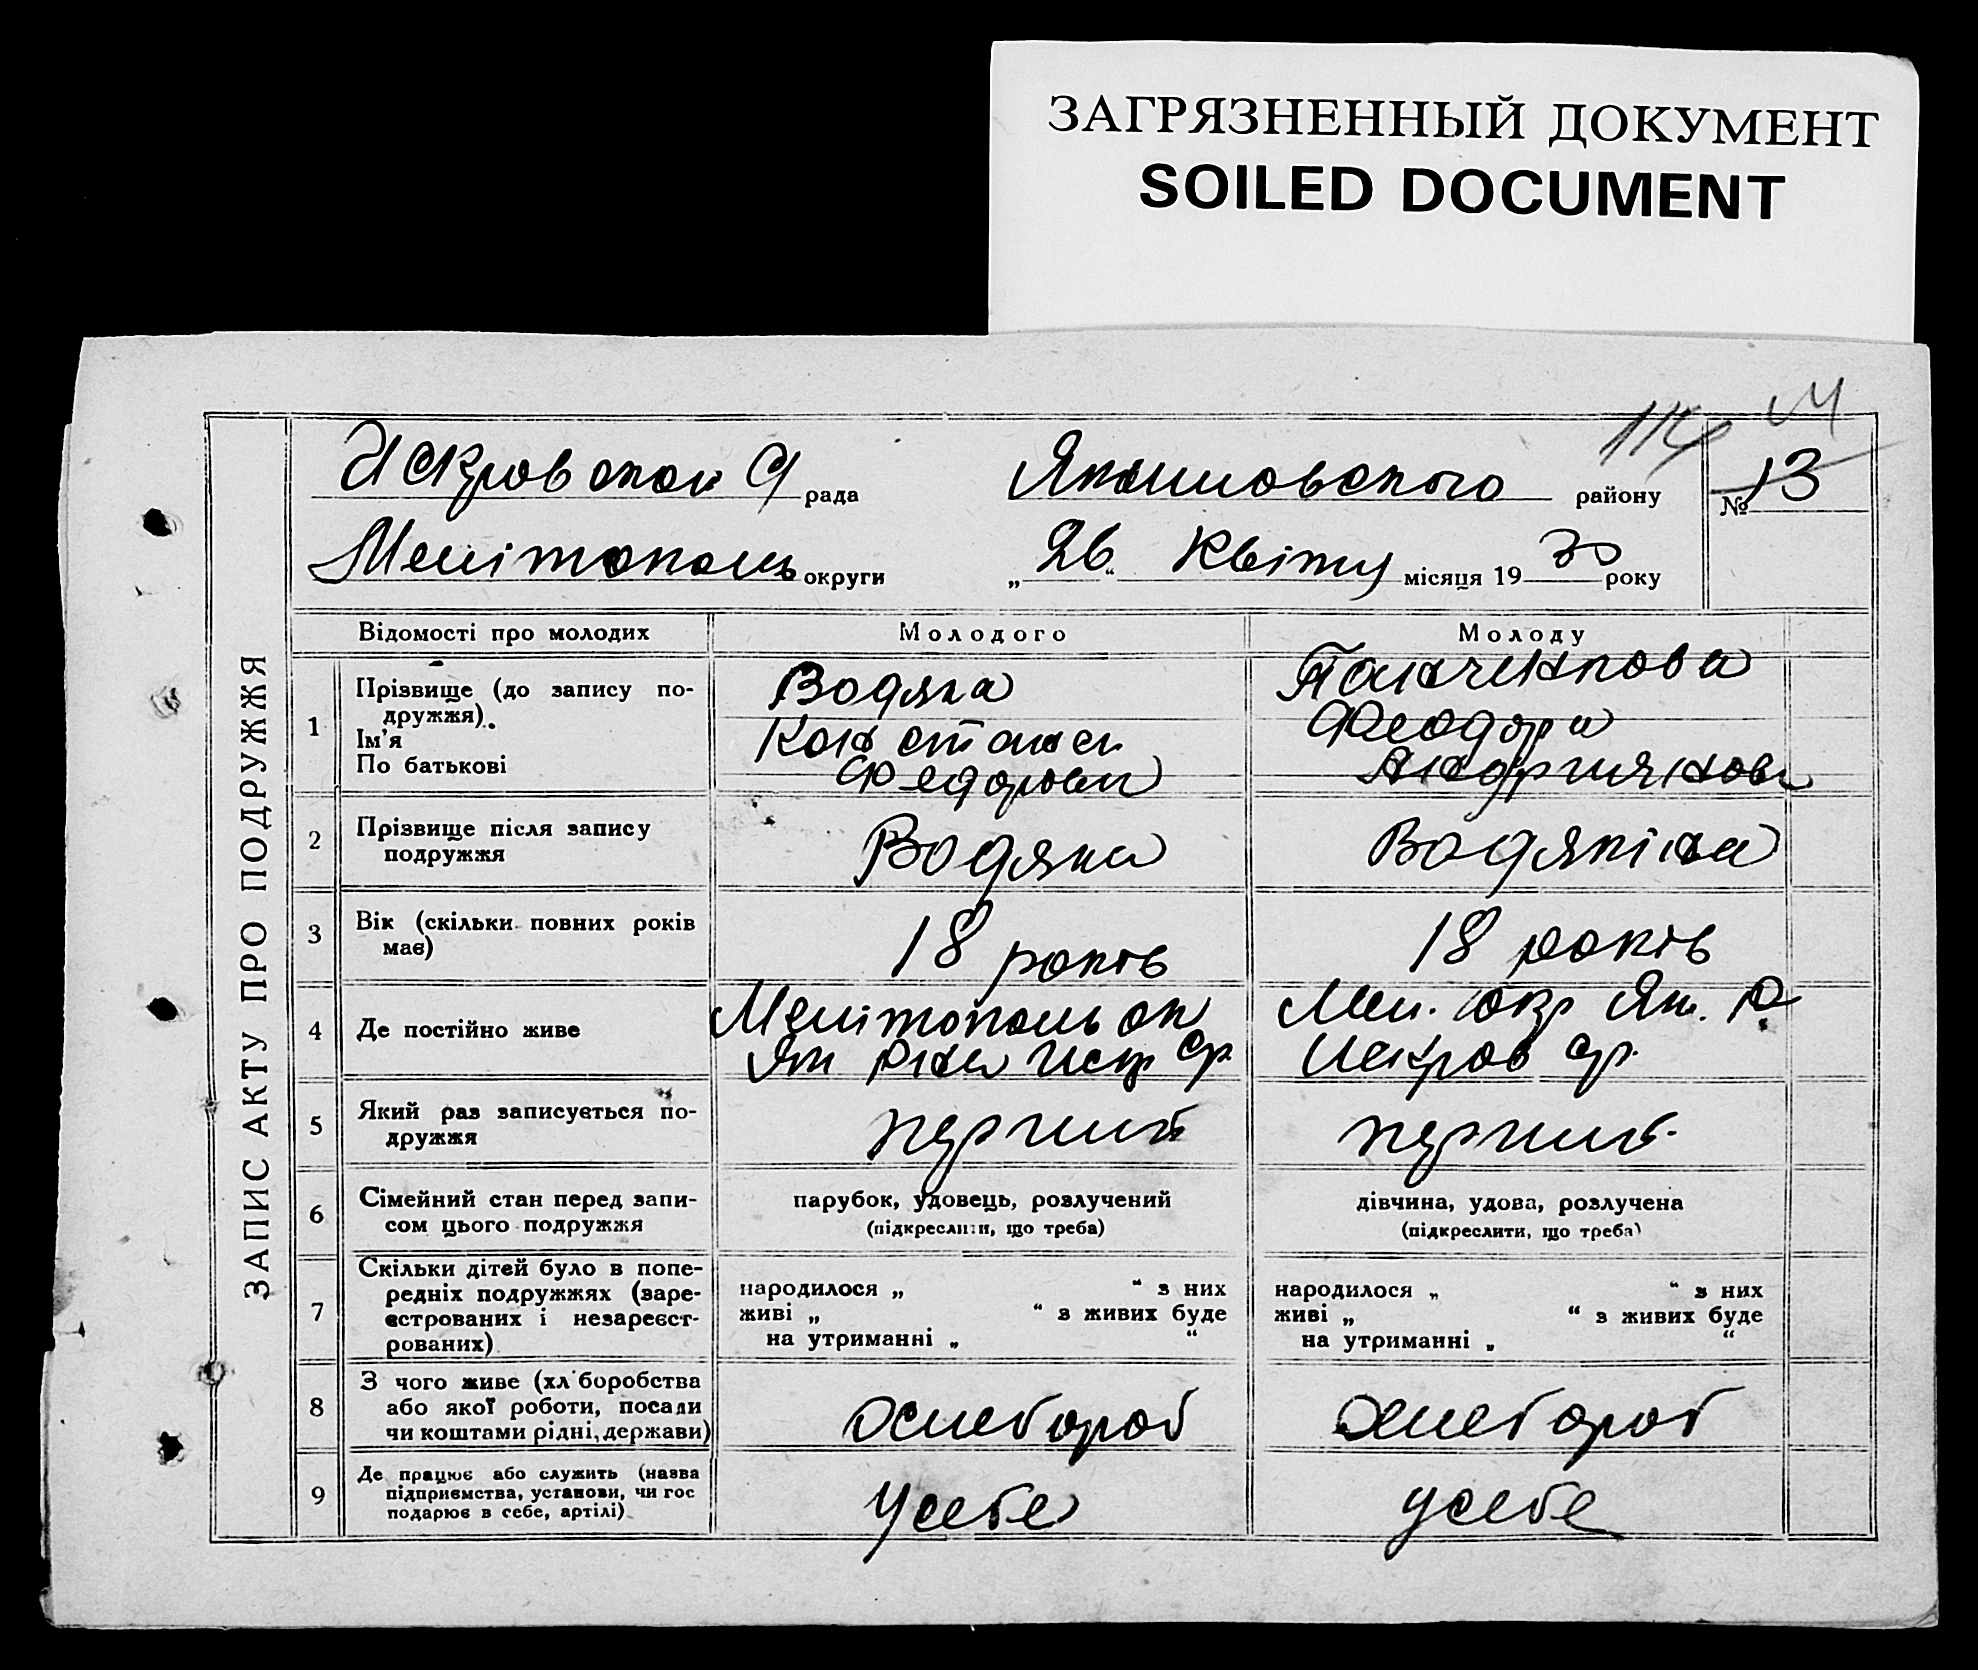 ЗАГРЯЗНЕННЫЙ ДОКУМЕНТ
SOILED DOCUMENT
114
ЗАПИС АКТУ ПРО ПОДРУЖЖЯ
Искровской С рада
Якимовского району
№ 13
Мелітополь округи
„26“ Квітня місяця 1930 року
Відомості про молодих
Молодого
Молоду
1
Прізвище (до запису по-
дружжя).
Ім'я
По батькові
Водяка
Констант
Федоров
Феодора
Андрияновна
2
Прізвище після запису
подружжя
Водяка
3
Вік (скільки повних років
має)
18 років
18 років
4
Де постійно живе
Мелітопольск
Як Искр Ср
Мел. окр Як. Р
Искров ср.
5
Який раз записується по-
дружжя
перший
перший
6
Сімейний стан перед запи-
сом цього подружжя
парубок, удовець, розлучений
(підкреслити, що треба)
дівчина, удова, розлучена
(підкреслити, що треба)
7
Скільки дітей було в попе-
редніх подружжях (заре-
єстрованих і незареєст-
рованих)
народилося „ “ з них
живі „ “ з живих буде
на утриманні „ “
народилося „ “ з них
живі „ “ з живих буде
на утриманні „ “
8
З чого живе (хліборобства
або якої роботи, посади
чи коштами рідні, держави)
хлебороб
хлебороб
9
Де працює або служить (назва
підприємства, установи, чи гос
подарює в себе, артілі)
усебе
усебе